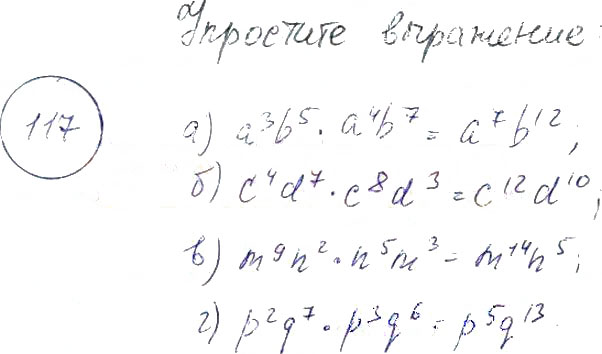 Упростите выражение:
117
а) a³b⁵ · a⁴b⁷ = a⁷b¹²;
б) c⁴d⁷ · c⁸d³ = c¹²d¹⁰;
в) m⁹n² · n⁵m³ = m¹⁴n⁵;
г) p²q⁷ · p³q⁶ = p⁵q¹³